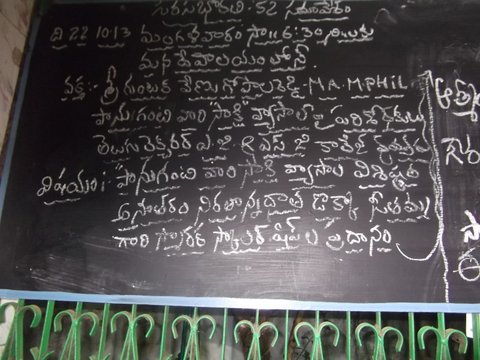 సరసభారతి 52 సమావేశం
ది 22 10.13 మంగళవారం సా॥ 6:30 గం॥లకు
మన దేవాలయంలోనే.
వక్త:- శ్రీ గుంటక వేణుగోపాలరెడ్డి. M.A. M.PHIL
పానుగంటి వారి సాక్షి వ్యాసాలపై పరిశోధకులు
తెలుగు లెక్చరర్ ఎ.జి & ఎస్.జి కాలేజి
విషయం: పానుగంటి వారి సాక్షి వ్యాసాల విశిష్టత
అనంతరం నిరతాన్నదాత డొక్కా సీతమ్మ
గారి స్మారక స్కాలర్ షిప్ ల ప్రదానం